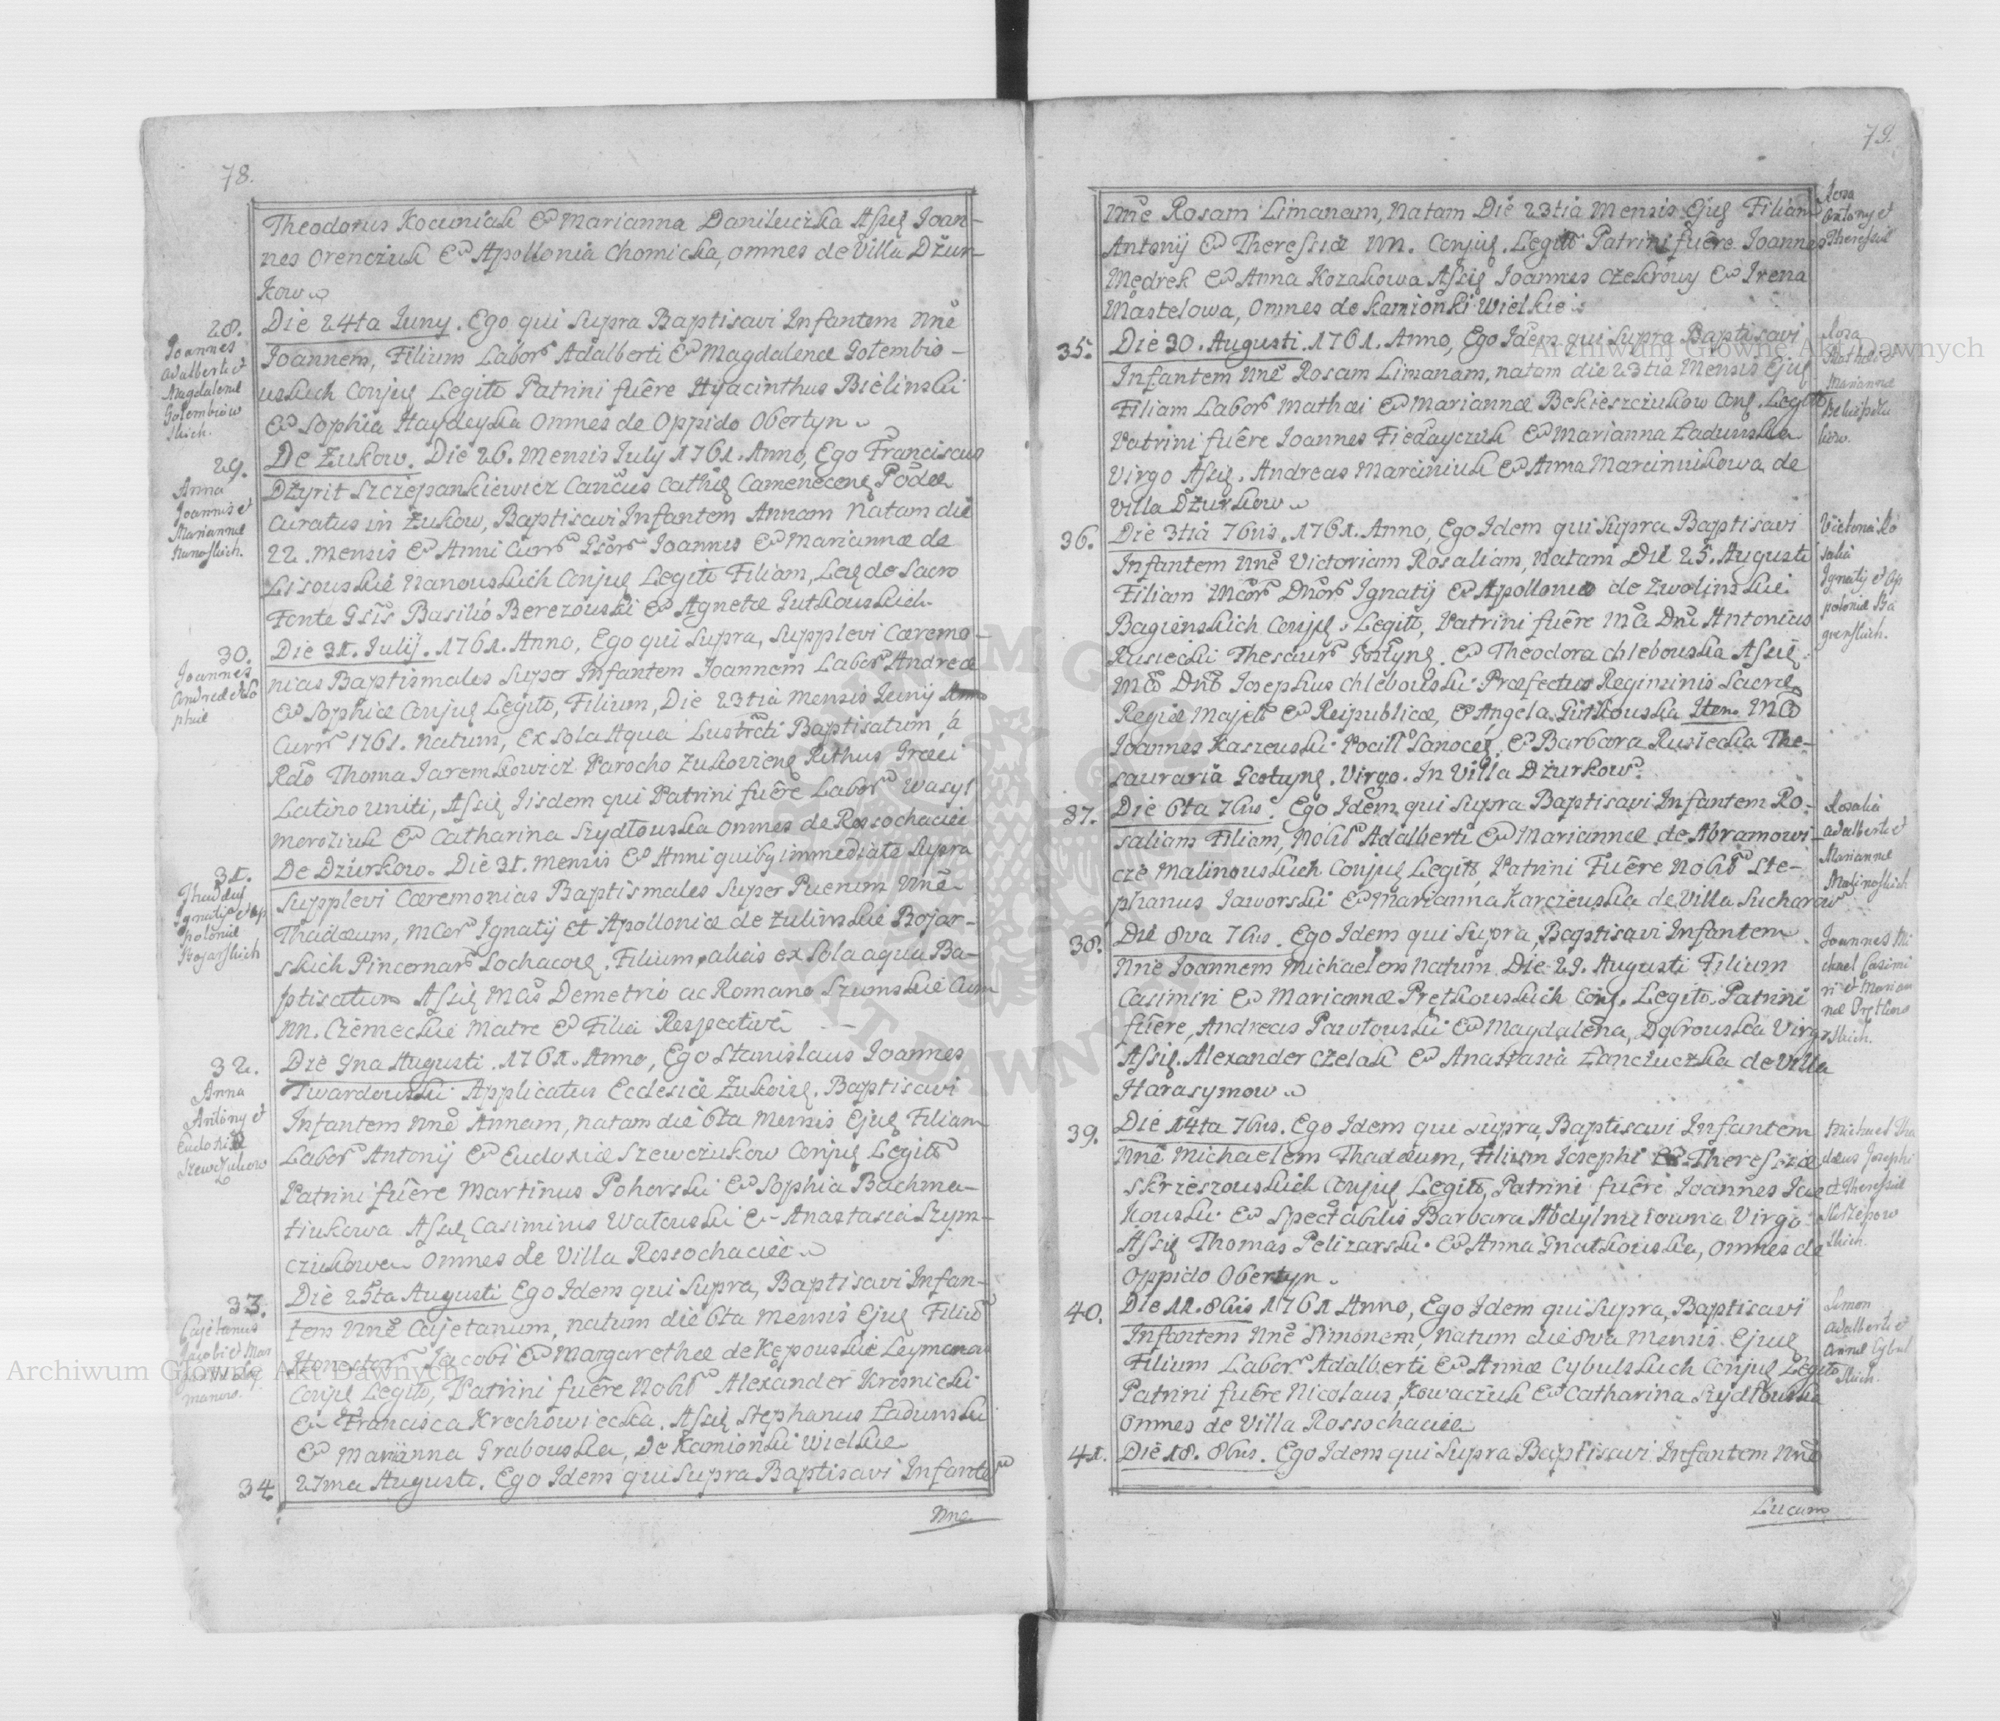 78.
Theodorus Kocuniak & Marianna Danileiczka Assiẽ Joan-
nes Orenczuk & Apollonia Chomicka, omnes de Villa Dżur-
kow
28.
Joannes
Adalberti et
Magdalenæ
Gołembiow
skich.
Die 24ta Juny. Ego qui supra Baptisavi Infantem Nñe
Joannem, Filium Labor. Adalberti & Magdalenæ Gołembio-
wskich Conjuḡ Legitõ Patrini fuêre Hyacinthus Bielinski
& Sophia Haydeyska Omnes de Oppido Obertyn
29.
Anna
Joannis et
Mariannæ
Nanoskich.
De Żukow. Die 26. Mensis July 1761. Anno, Ego Franciscus
Dżyrit Szczepankiewicz Cancũs Cathlẽ Camenecenẽ Põdæ
Curatus in Żukow, Baptisavi Infantem Annam Natam die
22. Mensis & Anni Curr. Gsõr. Joannis & Mariannæ de
Lisouskie Nanouskich Conjuḡ Legitõ Filiam, Leḡ de Sacro
Fonte Gsis Basilio Berezouski & Agnetæ Gutkouskich
30.
Joannes
Andreæ et So
phiæ
Die 31. Julij. 1761. Anno, Ego qui supra, Supplevi Cæremo-
nias Baptismales super Infantem Joannem Labor. Andreæ
& Sophiæ Conjuḡ Legitõ, Filium, Die 23tia Mensis Junij
Curr. 1761. natum, ex Sola Aqua Lustrĉti Baptisatum, à
Rdo Thoma Jaremkowicz Parocho Zukovienẽ Rithus Græci
Latino uniti, Assiẽ Iisdem qui Patrini fuêre Labor. Wasyl
Moroziuk & Catharina Szydłouska omnes de Rossochaciei
31.
Thadeus
Ignatij et Ap
poloniæ
Bojarskich
De Dziurkow. Die 31. Mensis & Anni quibꝫ immediate supra
Supplevi Cæremonias Baptismales super Puerum Nñe
Thadæum, Mcor. Ignatij et Apolloniæ de Zulinskie Bojar-
skich Pincernar. Sochacoẽ. Filium, aliàs ex Sola aqua Ba-
ptisatum Assiẽ Mcis Demetrio ac Romano Szumskie Cum
NN. Czemeckie Matre & Filia Respectivè
32.
Anna
Antony et
Eudoxiæ
Szewczukow
Die 9na Augusti. 1761. Anno, Ego Stanislaus Joannes
Twardouski Applicatus Ecclesiæ Żukoviẽ. Baptisavi
Infantem Nñe Annam, natam die 6ta Mensis Ejuẽ Filiam
Labor. Antonij & Eudoxiæ Szewczukow Conjuḡ Legitõ
Patrini fuêre Martinus Pohorski & Sophia Bachma-
tiukowa Assiẽ Casimirus Watouski & Anastasia Szym-
cziukowa Omnes de Villa Rossochaciei
33.
Cajetanus
Jacobi et Mar
garethæ Ley
manow.
Die 25ta Augusti Ego Idem qui supra, Baptisavi Infan-
tem Nñe Cajetanum, natum die 6ta Mensis Ejuẽ Filiũ
Honestor. Jacobi & Margarethæ de Kępouskie Leymana
Conjuḡ Legitõ, Patrini fuêre Nobl. Alexander Kresnicki
& Francisca Krechowiecka. Assiẽ Stephanus Ładunski
& Marianna Grabouska, De Kamionki Wielkie
34
27ma Augusti. Ego Idem qui supra Baptisavi Infantem
Nne
79.
Nñe Rosam Limanam, Natam Die 23tia Mensis Ejuẽ Filiam
Antonij & Theresiæ NN. Conjuḡ. Legitõ Patrini fuêre Joannes
Mędrek & Anna Kozakowa Assiẽ Joannes Czekrowy & Irena
Mastelowa, Omnes de Kamionki Wielkie
Rosa
Antony et
Theressiæ
35.
Die 30. Augusti. 1761. Anno, Ego Idem qui supra Baptisavi
Infantem Nñe Rosam Limanam, natam die 23tia Mensis Ejuẽ
Filiam Labor. Mathæi & Mariannæ Bekieszczukow Conḡ. Legitõ
Patrini fuêre Joannes Fiedayczuk & Marianna Ładunska
Virgo Assiẽ. Andreas Marciniuk & Anna Marciniukowa de
Villa Dżurkow
Rosa
Mathæi et
Mariannæ
36.
Die 3tia 7bris. 1761. Anno, Ego Idem qui supra Baptisavi
Infantem Nñe Victoriam Rosaliam, Natam Die 25. Augusti
Filiam Mcor. Dnor. Ignatij & Apolloniæ de Zwolinskiei
Bagienskich Conjuḡ. Legitõ, Patrini fuêre Mcũ Dnũ Antonius
Rusiecki Thesaur. Gostynẽ. & Theodora Chlebouska Assiẽ
Mcõ Dnõ Josephus Chlebouski Præfectus Regiminis Sacræ
Regiæ Majeŝt. & Reipublicæ, & Angela Gutkouska Item Mcõ
Joannes Kaszeuski Pocill. Sanoceẽ. & Barbara Rusiecka The-
sauraria Gostynẽ. Virgo. In Villa Dżurkow.
Victoria Ro
salia
Ignatij et Ap
poloniæ Ba
gienskich.
37.
Die 6ta 7bris. Ego Idem qui supra Baptisavi Infantem Ro-
saliam Filiam, Nobl. Adalberti & Mariannæ de Abramowi-
cze Malinouskich Conjuḡ Legitõ, Patrini Fuêre Nobl. Ste-
phanus Jaworski & Marianna Karczeuska de Villa Sucharow
Rosalia
Adalberti et
Mariannæ
Malinoskich
38.
Die 8va 7bris. Ego Idem qui supra, Baptisavi Infantem
Nñe Joannem Michaelem natum Die 29. Augusti Filium
Casimiri & Mariannæ Prętkouskich Conḡ. Legitõ. Patrini
fuêre, Andreas Pawłouski & Magdalena Dąbrouska Virgo
Assiẽ. Alexander Czelak & Anastasia Łanczuczka de Villa
Harasymow
Joannes Mi
chael Casimi
ri et Marian
næ Prętkow
skich.
39.
Die 14ta 7bris. Ego Idem qui supra, Baptisavi Infantem
Nñe Michaelem Thadæum, Filium Josephi & Theresiæ
Skrzeszouskich Conjuḡ Legitõ, Patrini fuêre Joannes Jac
kouski & Spectabilis Barbara Abdylmitouna Virgo
Assiẽ Thomas Pelizarski & Anna Gnatkouska, omnes de
Oppido Obertyn
Michael Tha
dæus Josephi
et Theressiæ
skich.
40.
Die 11. 8bris 1761 Anno, Ego Idem qui supra, Baptisavi
Infantem Nñe Simonem, Natum die 8va Mensis. Ejuẽ
Filium Labor. Adalberti & Annæ Cybulskich Conjuḡ Legitõ
Patrini fuêre Nicolaus Kowaczuk & Catharina Szydłouska
Omnes de Villa Rossochaciei
Simon
Adalberti et
Annæ Cybul
skich.
41.
Die 18. 8bris. Ego Idem qui supra Baptisavi Infantem Nñe
Lucam
Archiwum Główne Akt Dawnych
Archiwum Główne Akt Dawnych